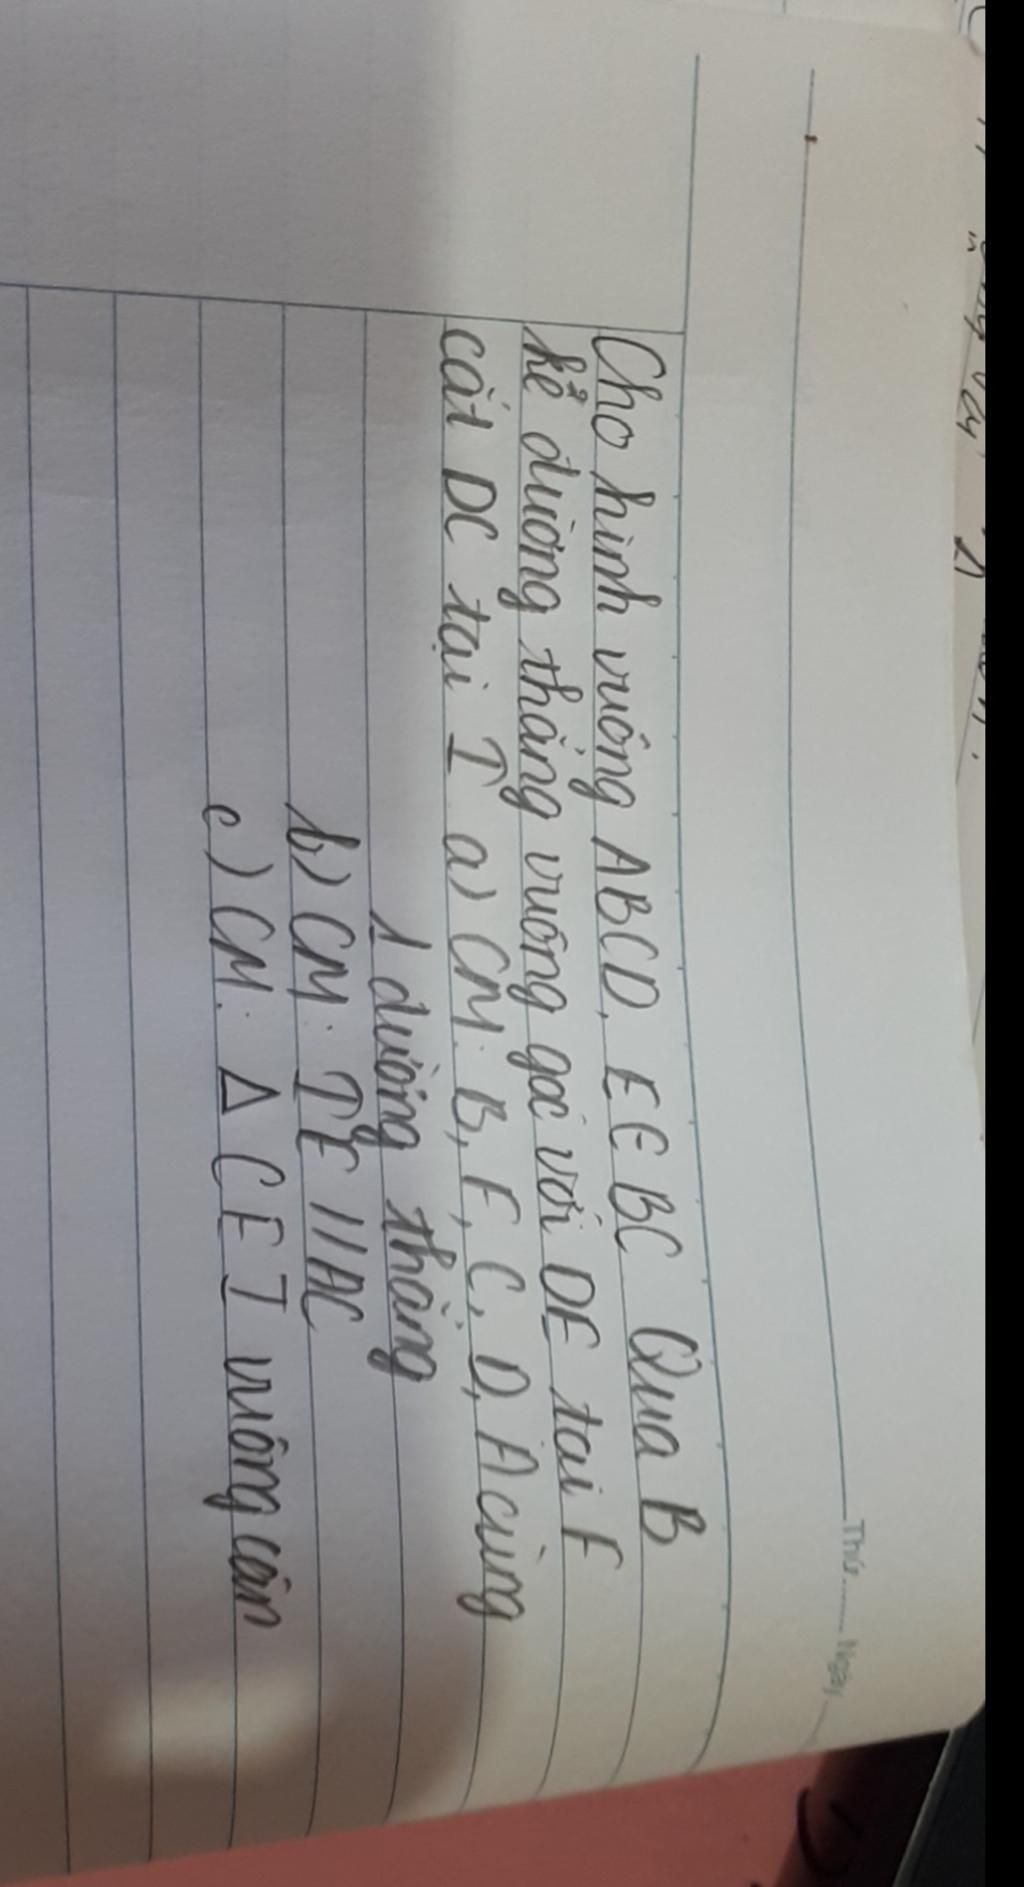 Thứ...... Ngày......
Cho hình vuông ABCD, E ∈ BC Qua B
kẻ đường thẳng vuông góc với DE tại F
cắt DC tại I a) CM: B, F, C, D, A cùng
1 đường thẳng
b) CM: IE // AC
c) CM: Δ CEI vuông cân